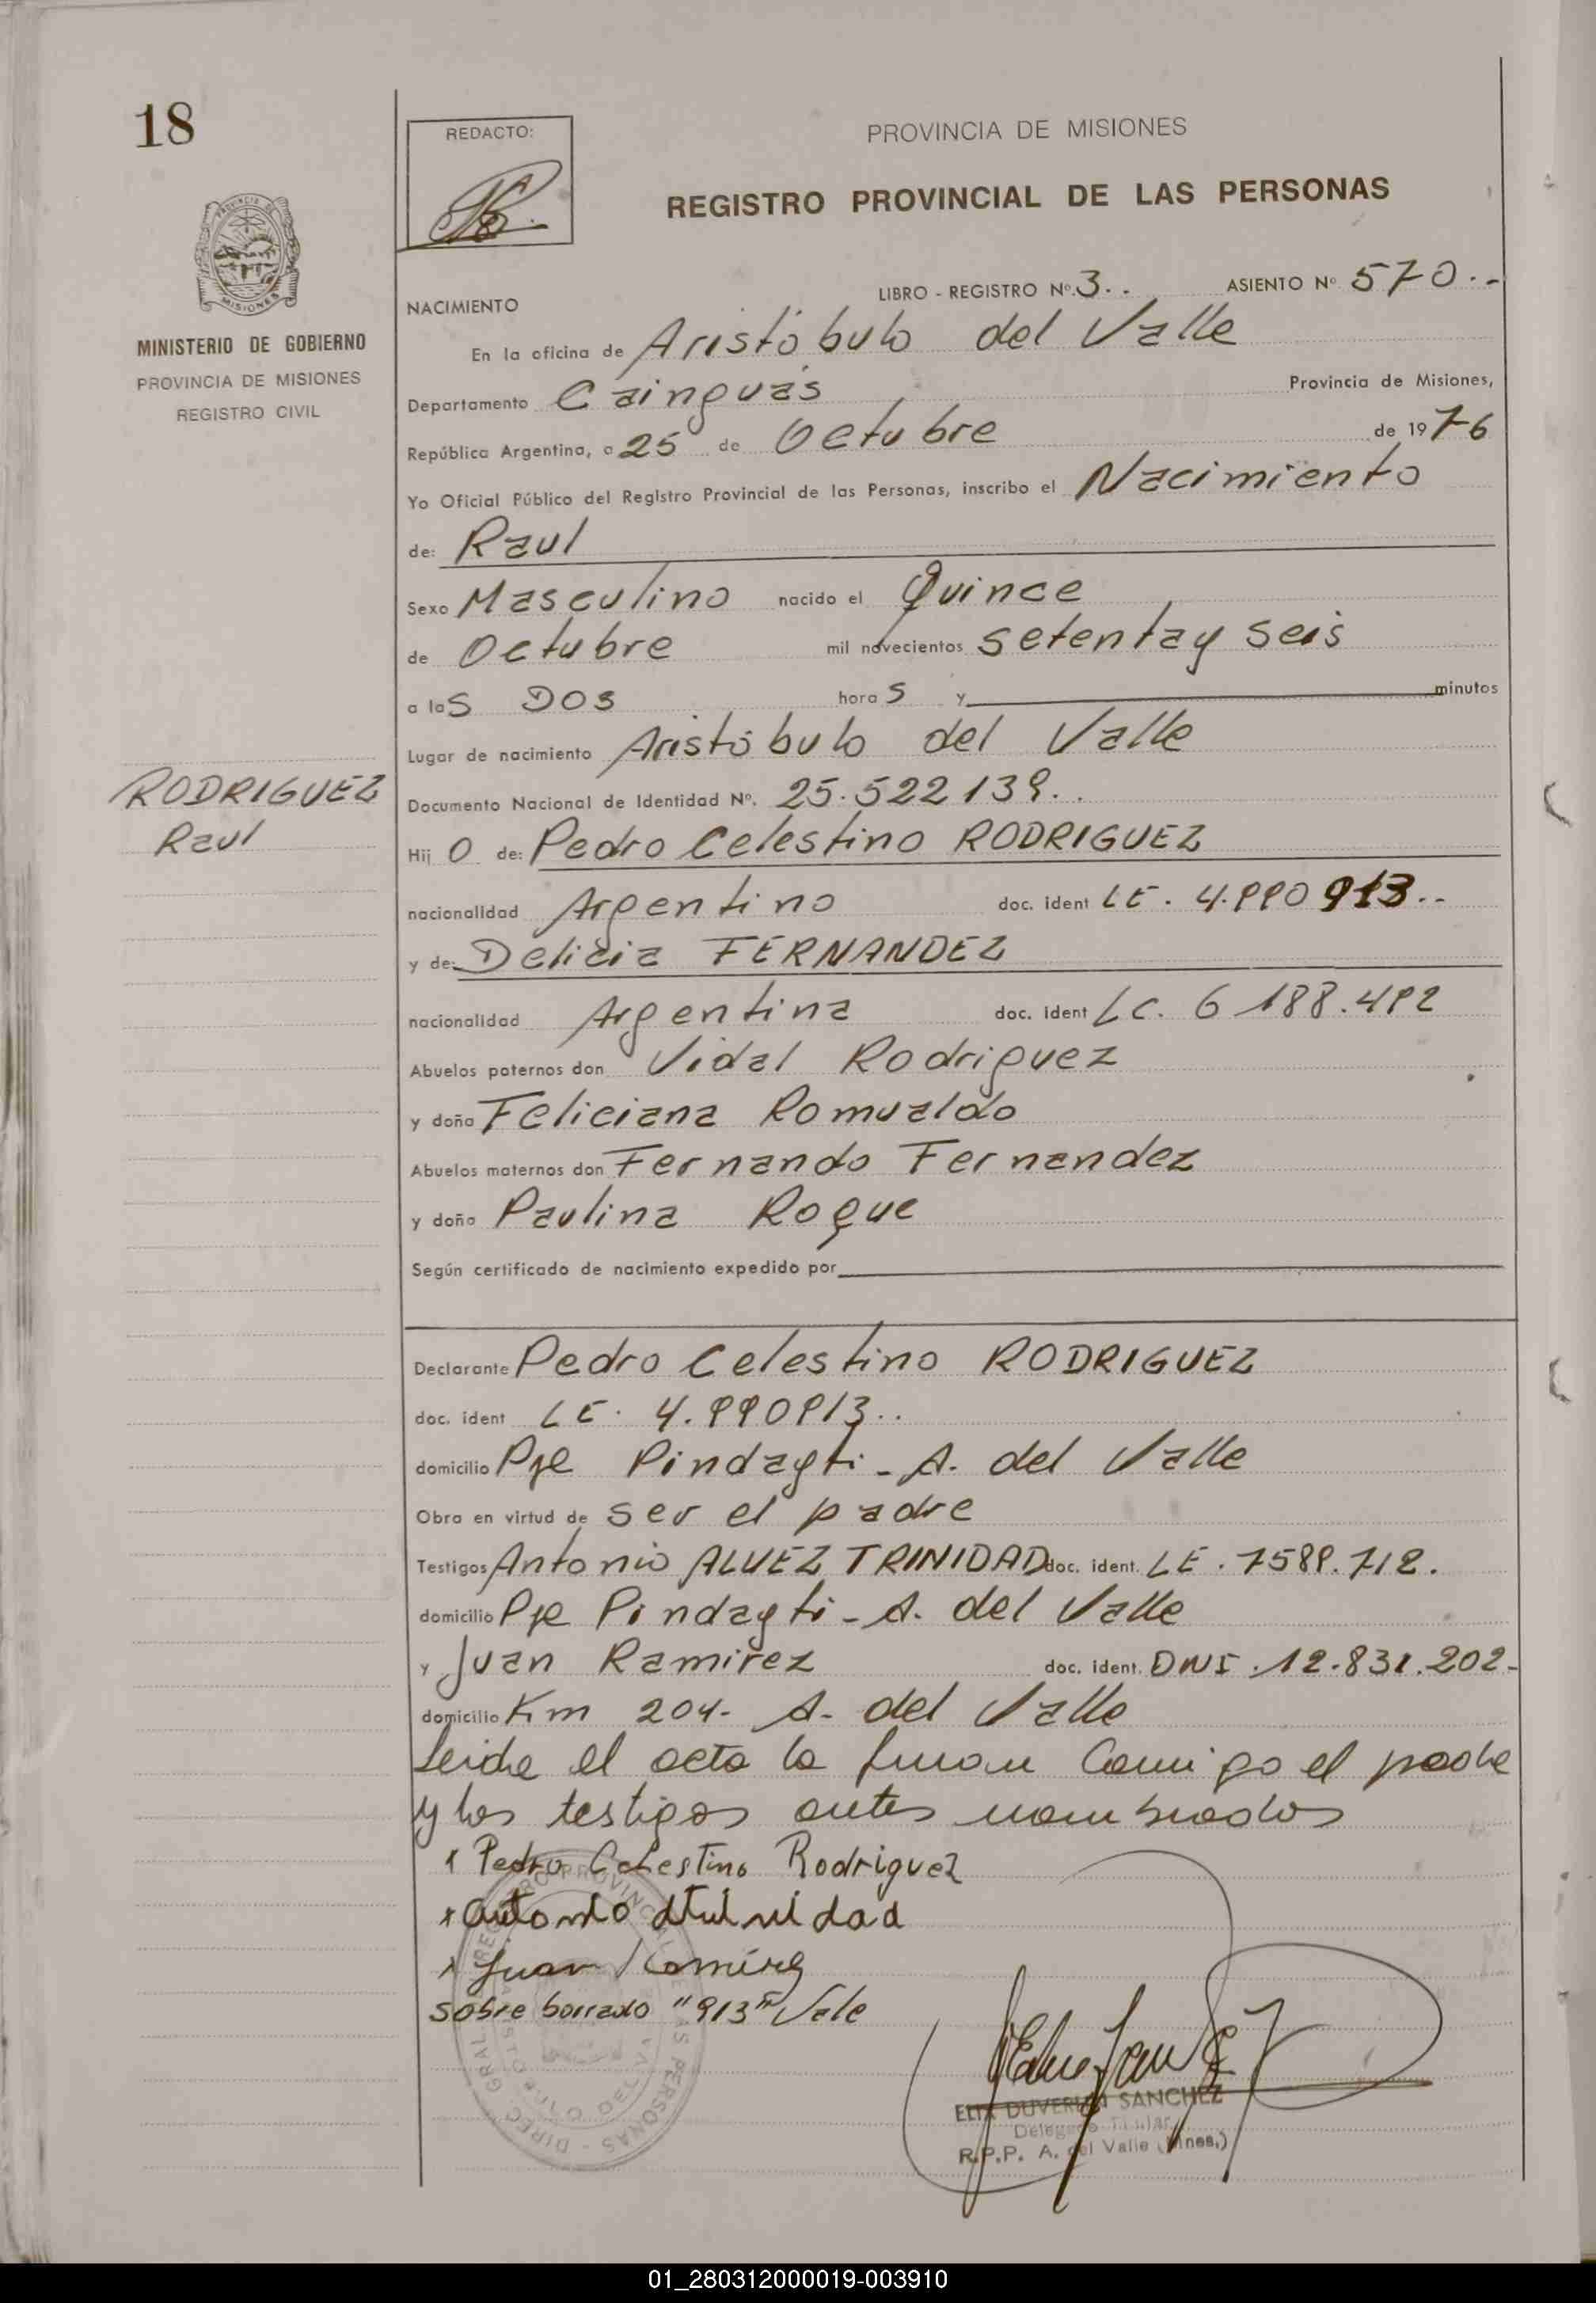 18
REDACTO:
PROVINCIA DE MISIONES
REGISTRO PROVINCIAL DE LAS PERSONAS
MISIONES
MINISTERIO DE GOBIERNO
PROVINCIA DE MISIONES
REGISTRO CIVIL
LIBRO - REGISTRO Nº. 3. . ASIENTO Nº 570. -
NACIMIENTO
En la oficina de Aristóbulo del Valle
Departamento Cainguás Provincia de Misiones,
República Argentina, a 25 de Octubre de 1976
Yo Oficial Público del Registro Provincial de las Personas, inscribo el Nacimiento
de: Raul
Sexo Masculino nacido el Quince
de Octubre mil novecientos setenta y seis
a las DOS horas y minutos
Lugar de nacimiento Aristóbulo del Valle
RODRIGUEZ
Raul
Documento Nacional de Identidad Nº. 25.522139. .
Hijo de: Pedro Celestino RODRIGUEZ
nacionalidad Argentino doc. ident LE. 4.990913. .
y de: Delicia FERNANDEZ
nacionalidad Argentina doc. ident LC. 6 188.492
Abuelos paternos don Vidal Rodriguez
y doña Feliciana Romualdo
Abuelos maternos don Fernando Fernandez
y doña Paulina Roque
Según certificado de nacimiento expedido por
Declarante Pedro Celestino RODRIGUEZ
doc. ident LE. 4.990913. .
domicilio Pje Pindayti - A. del Valle
Obra en virtud de ser el padre
Testigos Antonio ALVEZ TRINIDAD doc. ident. LE. 7589.712.
domicilio Pje Pindayti - A. del Valle
y Juan Ramirez doc. ident. DNI. 12.831.202-
domicilio Km 204. A. del Valle
Leida el acta la firman Conmigo el padre
y los testigos antes nombrados
x Pedro Celestino Rodriguez
x Antonio Atrinidad
x Juan Ramirez
sobre borrado "913" Vale
ELIX DUVERLY SANCHEZ
Delegado Titular
R.P.P. A. del Valle (Mnes.)
01_280312000019-003910